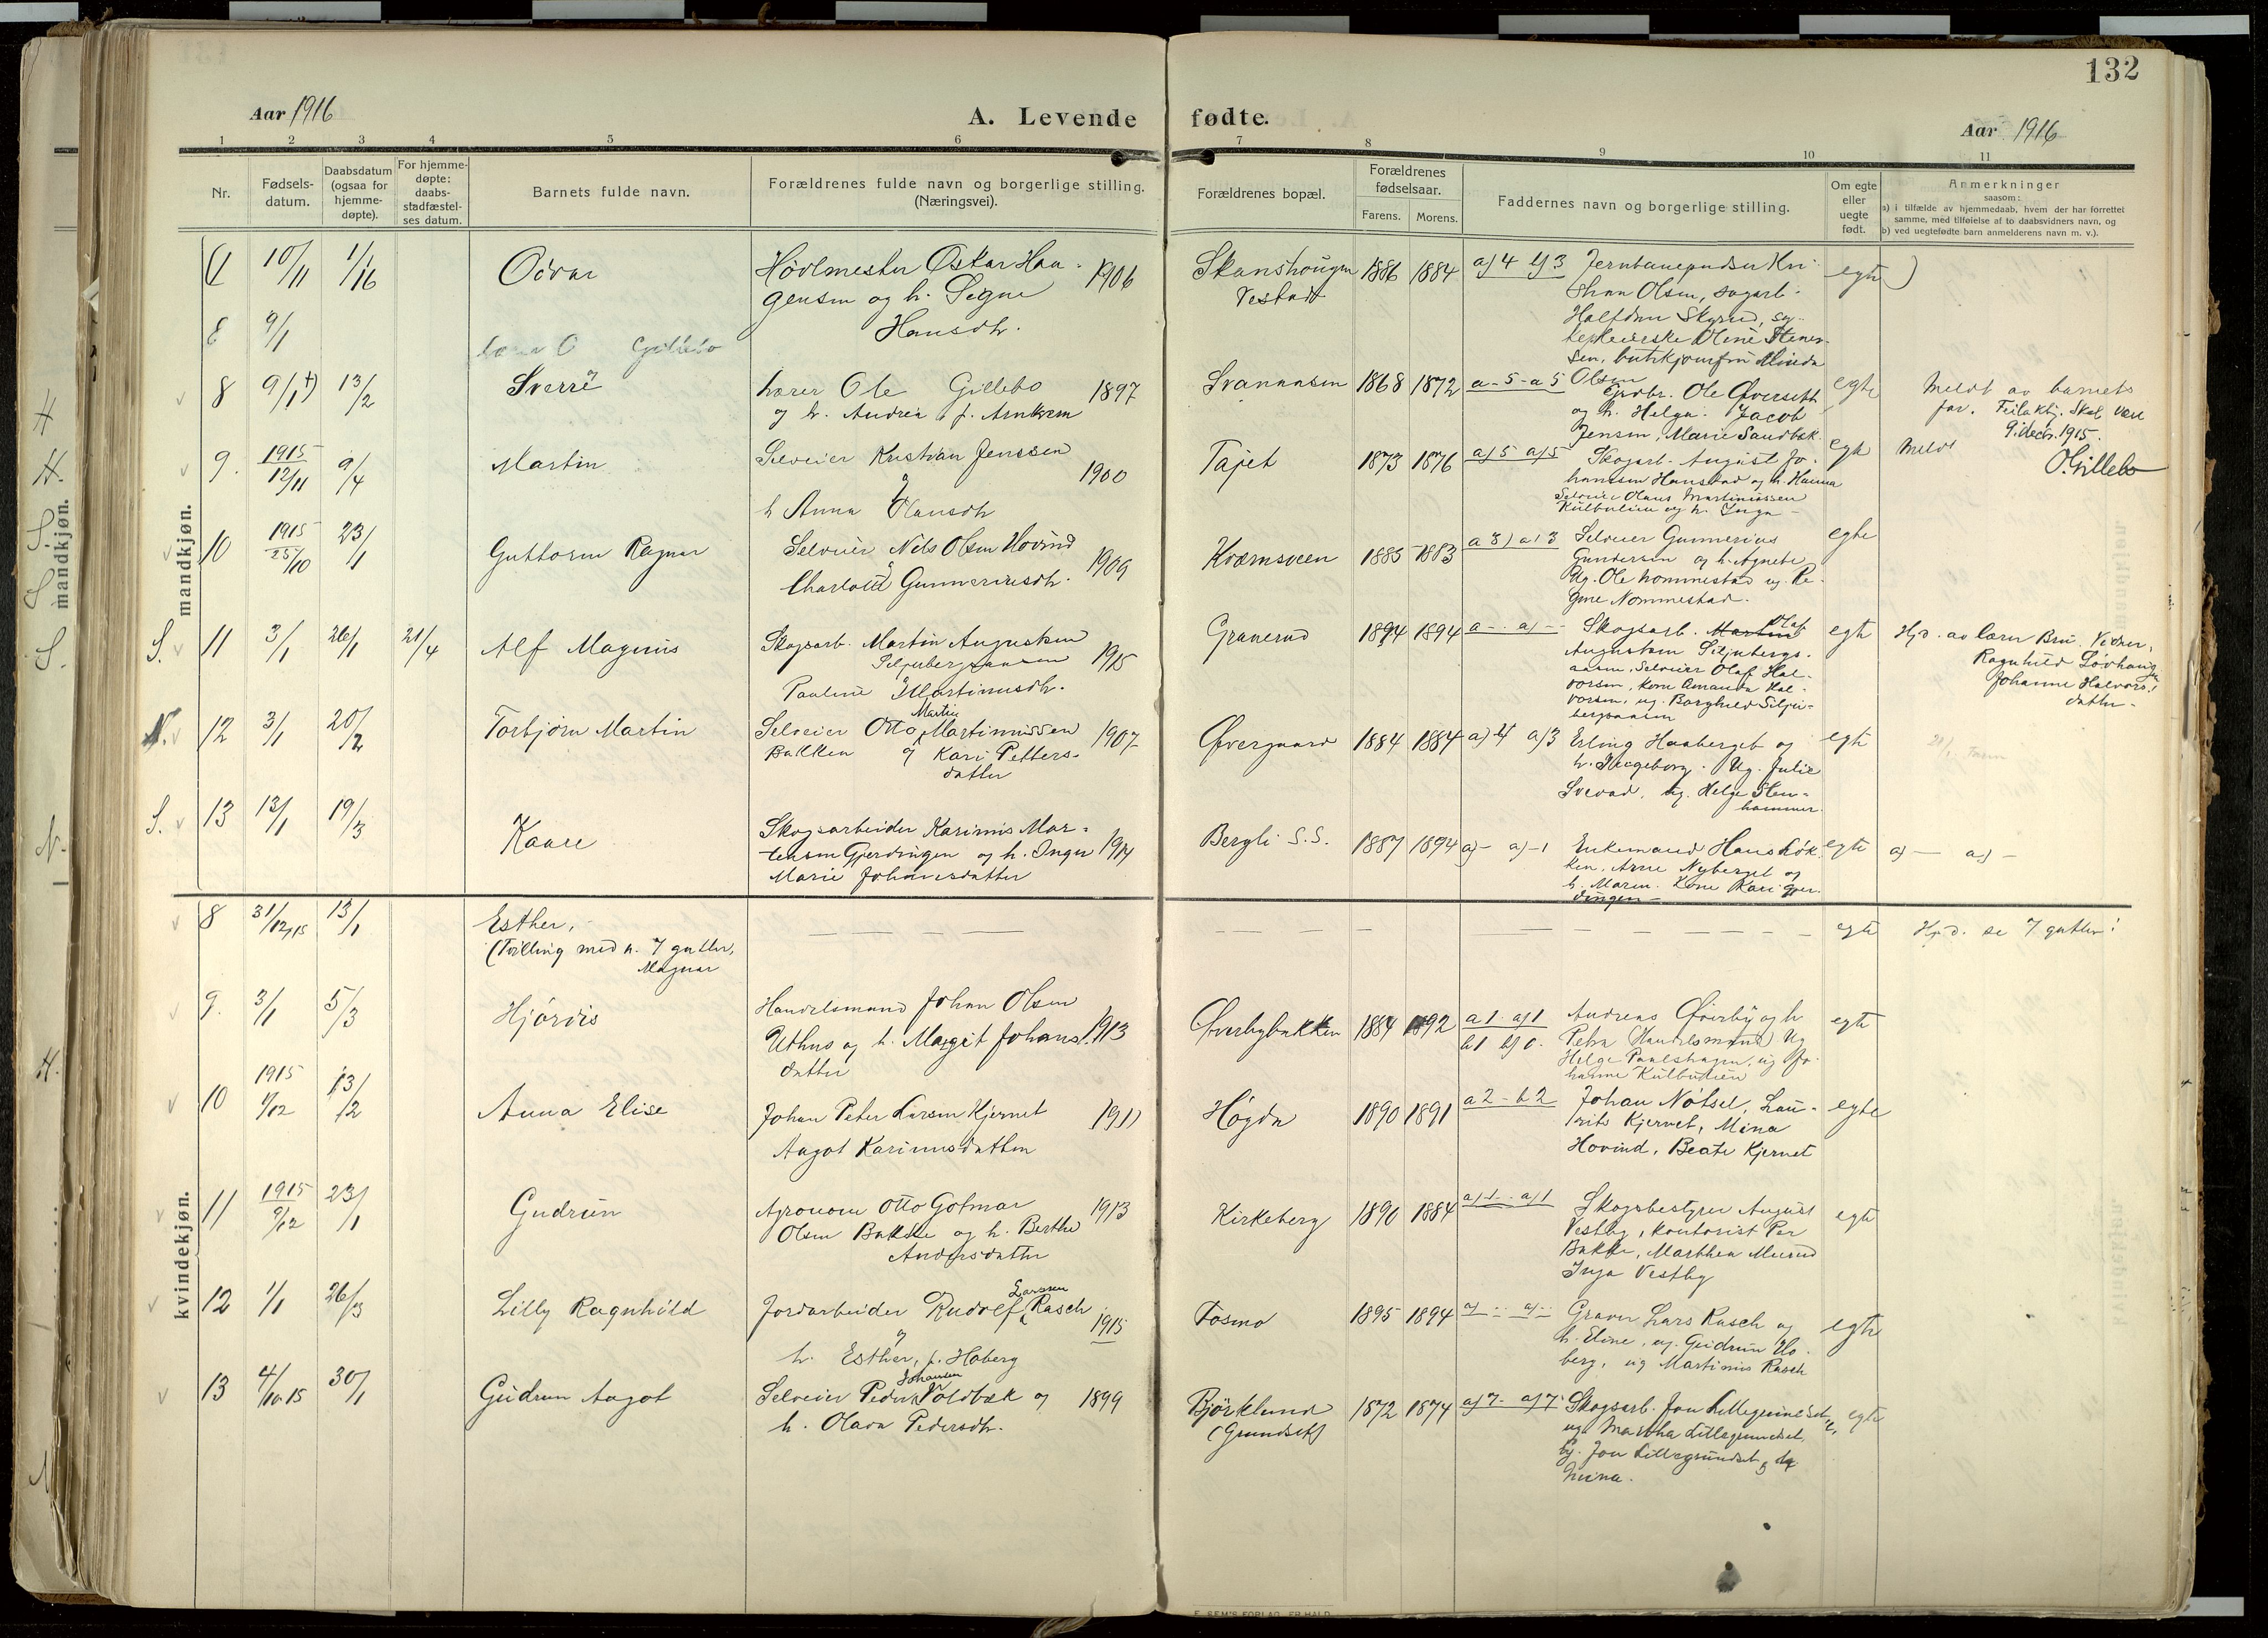 132
Aar 1916
A. Levende fødte.
Aar 1916
1 2 3 4 5 6 7 8 9 10 11
Nr.
Fødsels-
datum.
Daabsdatum
(ogsaa for
hjemme-
døpte).
For hjemme-
døpte:
daabs-
stadfæstel-
ses datum.
Barnets fulde navn.
Forældrenes fulde navn og borgerlige stilling.
(Næringsvei).
Forældrenes bopæl.
Forældrenes
fødselsaar.
Farens. Morens.
Faddernes navn og borgerlige stilling.
Om egte
eller
uegte
født.
Anmerkninger
saasom:
a) i tilfælde av hjemmedaab, hvem der har forrettet
samme, med tilføielse af to daabsvidners navn, og
b) ved uegtefødte barn anmelderens navn m. v.).
mandkjøn.
10/11 1/16 Odvar
Høvlmester Oskar Haa-
gensen og h. Signe 1906
Hansdtr.
Vestad 1886 1884 a) 4 b) 3
Halfdan Skyrud, sy-
Olsen
egte
9/1
Gillebo
8 9/1 13/2 Sverre
Lærer Ole Gillebo 1897
og h. Andrea f. Arnkvern
Svanaasen 1868 1872 a-5-a5
Gbr. Ole Øverseth
og h. Helga. Jacob
Jensen, Marie Sandbæk.
egte
Meldt av barnets
far. Skal være
9. decbr. 1915.
O. Gillebo
9. 1915 12/11 9/4 Martin
Selveier Kristian Jenssen
og 1900
h Anna Hansdtr
Tajet 1873 1876 a) 5 a) 5
Skogarb. August Jo-
hanssen Hanstad og h. Hanna
Selveier Olaus Martiniussen
Kulbulien og h. Inga
egte
Meldt
10 1915 25/10 23/1 Guttorm Ragnar
Selveier Nils Olsen Hovind
og 1909
Charlotte Gunneriusdtr.
Kværnsveen 1885 1883 a 3) a) 3
Selveier Gunnerius
Gundersen og h. Agnete
Ug. Ole Nommestad ug. Re-
gine Nommestad.
egte
S. 11 3/1 26/1 21/4 Alf Magnus
Skogsarb. Martin Augustsen
Siljubergsaasen 1915
og
Pauline Martinusdtr.
Granerud 1894 1894 a - a) -
Skogsarb. Martin Olaf
Augustsen Siljubergs-
aasen, Selveier Olaf Hal-
vorsen, kone Amanda Hal-
vorsen, ug. Borghild Silju-
bergsaasen
egte
Hjd. av lærer Bru. Vidner,
Ragnhild Løvhaug
Johanne Halvors-
datter
N. 12 3/1 20/2 Torbjørn Martin
Martin
Selveier Otto Martinussen
Bakken og Kari Petters- 1907
datter
Øvergaard 1884 1884 a) 4 a) 3
Erling Haaberget og
h. Ingeborg. Ug. Julie
Svevad, ug. Helge Sten-
hammer.
egte
S. 13 13/1 19/3 Kaare
Skogsarbeider Karinius Mar-
tensen Gjerdingen og h. Inga 1914
Marie Johansdatter
Bergli S.S. 1887 1894 a) - a) - 1
Enkemand Hans Løk-
ken, Arne Nyberget og
h. Maren. Kone Kari Gjer-
dingen
egte
a) — a) —
kvindekjøn.
8 31/12,15 13/1 Esther,
(Tvilling med n. 7 gutter,
Magnar
egte
Hjd. se 7 gutter!
9. 3/1 5/3 Hjördis
Handelsmand Johan Olsen
Uthus og h. Margit Johans- 1913
datter
Øverbybakken 1884 1892 a 1 a) 1
Andreas Øverby og h
Petra (Handelsmand) Ug
Helge Paalshagen, ug Jo-
hanne Kulbulien
egte
10 1915 1/12 13/2 Anna Elise
Johan Peter Larsen Kjernet 1911
Aagot Kariniusdatter
Høgda 1890 1891 a 2 - b 2
Johan Nötsel, Lau-
rits Kjernet, Mina
Hovind, Beate Kjernet
egte
11 1915 9/12 23/1 Gudrun
Agronom Otto Gotmar 1913
Olsen Bakke og h. Berthe
Andersdatter
Kirkeberg 1890 1884 a) 1 a) 1
Skogsbestyrer August
Vestby, kontorist Per
Bakke, Marthea Murud
Inga Vestby
egte
12 1/1 26/3 Lilly Ragnhild
Larssen
Jordarbeider Rudolf Rasch
og 1915
h. Esther, f. Hoberg
Fosmo 1895 1894 a) - a) -
Graver Lars Rasch og
h. Eline, ug. Gudrun Ho-
berg, ug Martinius Rasch
egte
13 4/10.15 30/1 Gudrun Aagot
Johansen
Selveier Peder Voldbæk og 1899
h. Olava Pedersdtr.
Björklund
(Grundset) 1872 1874 a) 7 - a) 7
Skogsarb. Jon Lillegrundset,
ug. Martha Lillegrundset,
Gbr. Jon Lillegrundset
egte